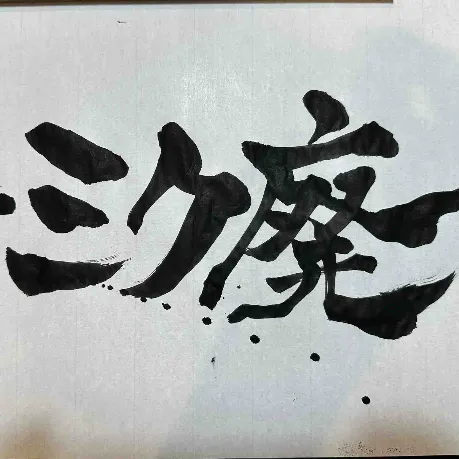 ミク廃